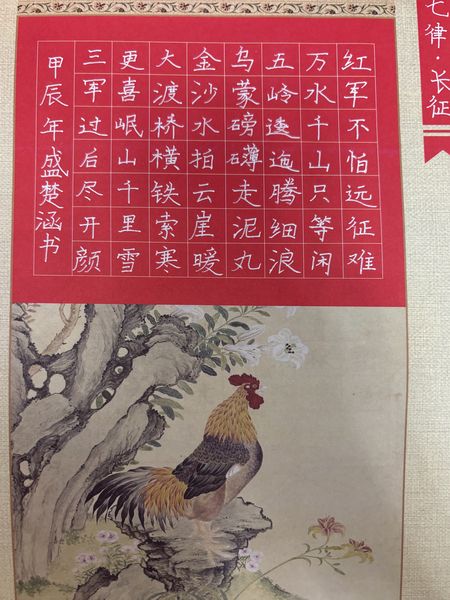 七律·长征
红军不怕远征难
万水千山只等闲
五岭逶迤腾细浪
乌蒙磅礴走泥丸
金沙水拍云崖暖
大渡桥横铁索寒
更喜岷山千里雪
三军过后尽开颜
甲辰年盛楚涵书